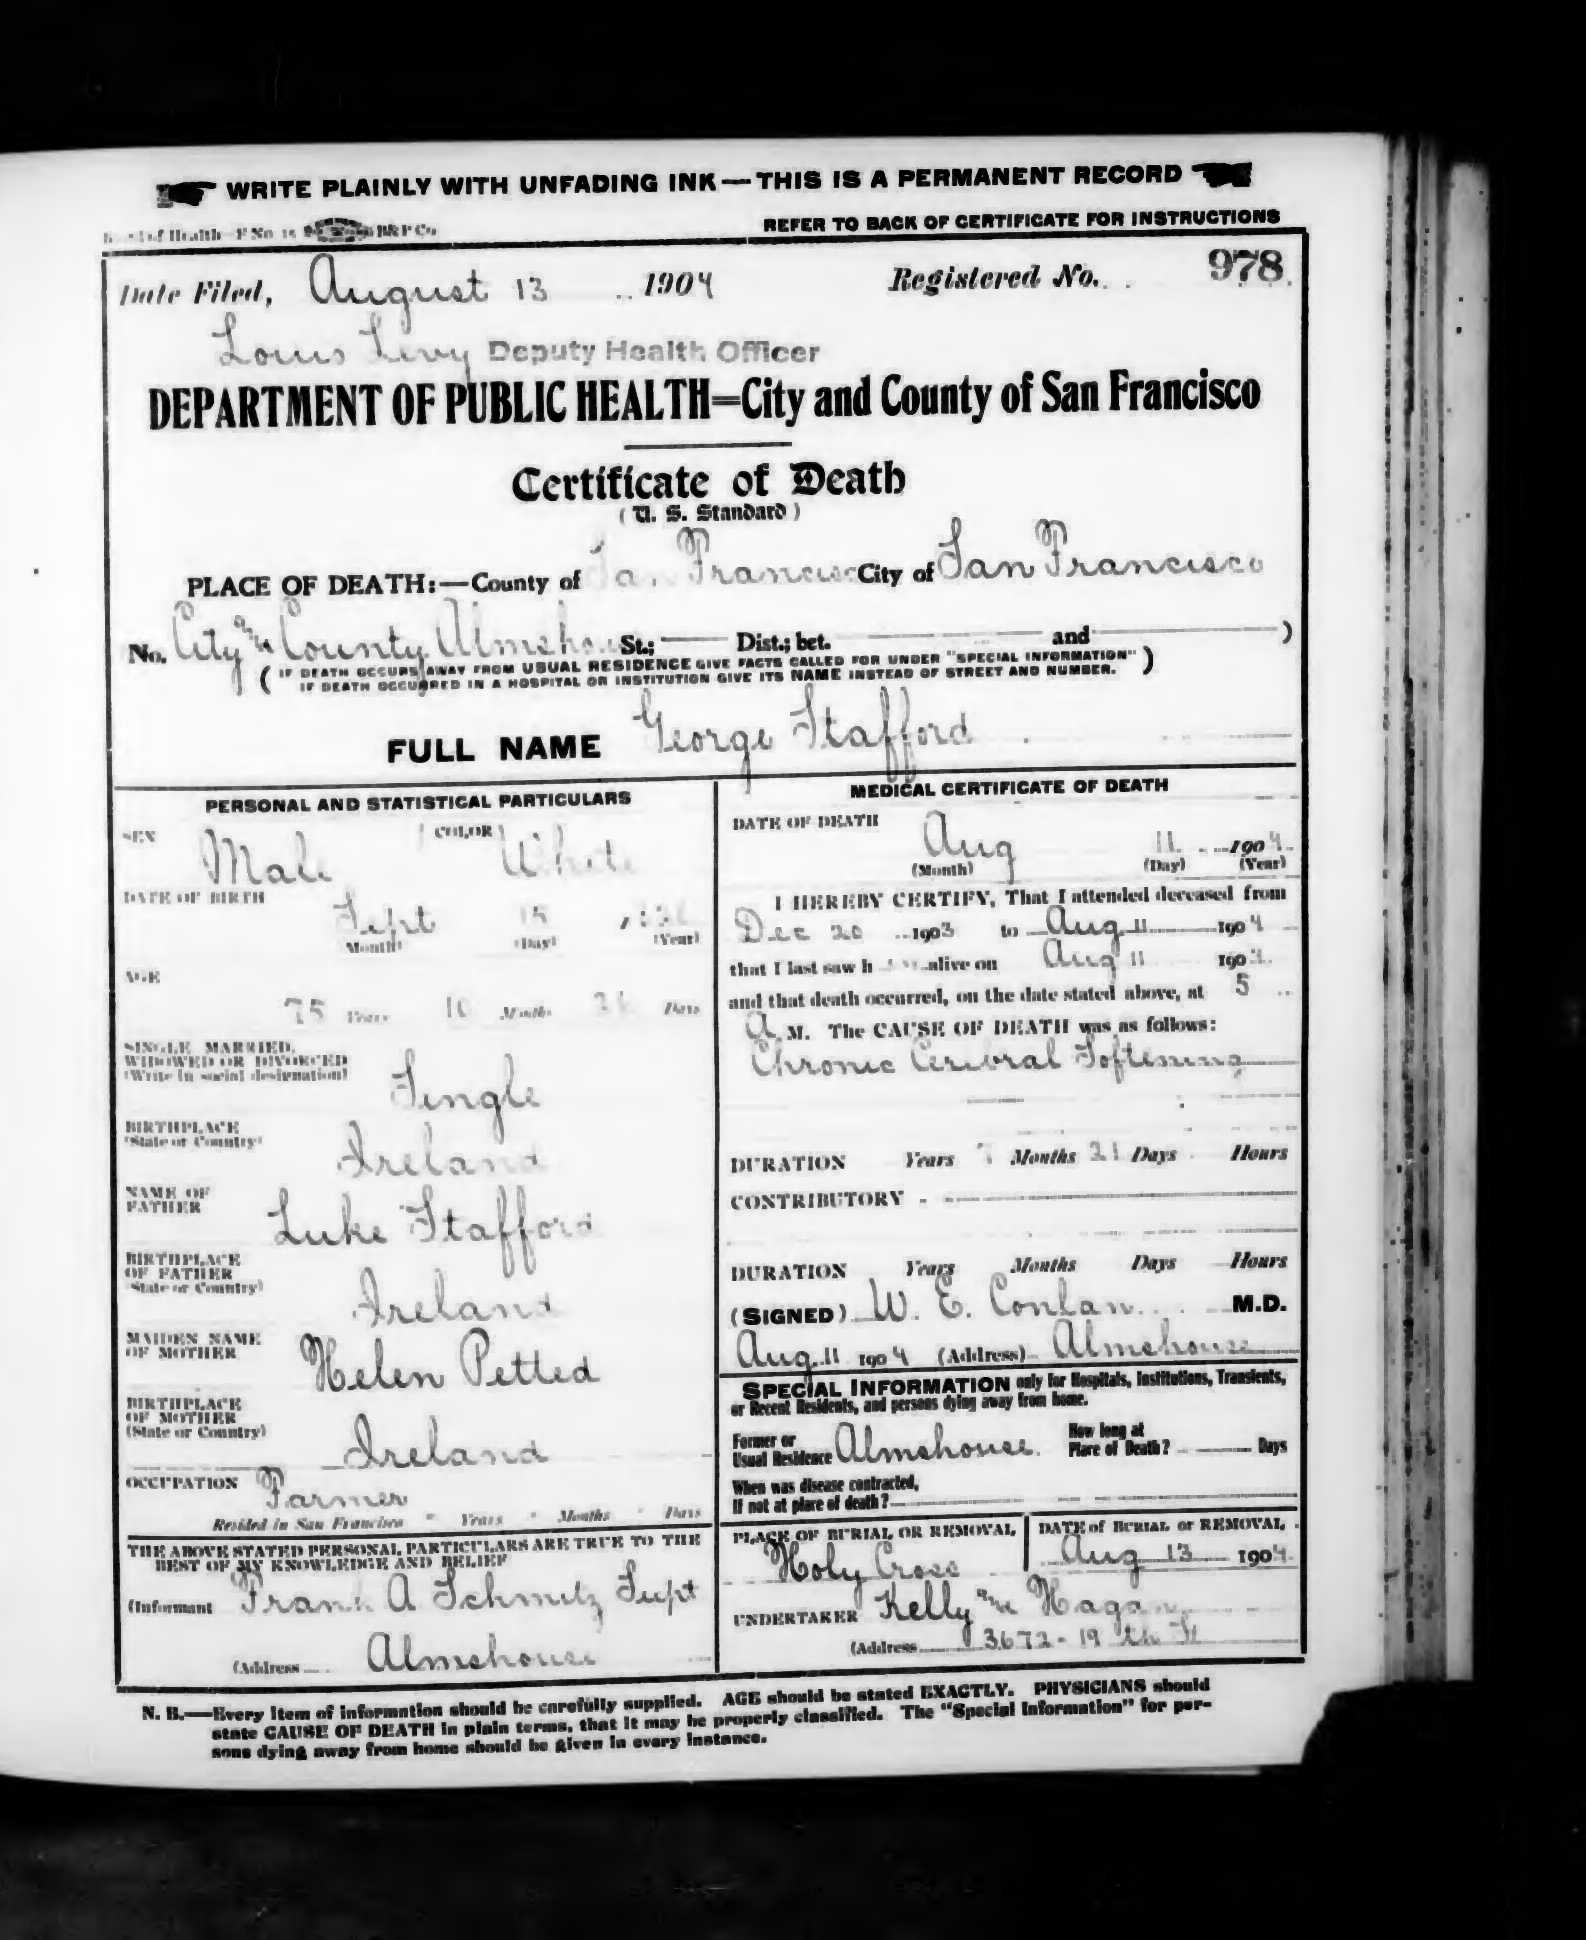 WRITE PLAINLY WITH UNFADING INK—THIS IS A PERMANENT RECORD
of Health—F No. 15 B&P Co
REFER TO BACK OF CERTIFICATE FOR INSTRUCTIONS
Date Filed, August 13 1904 Registered No. 978
Louis Levy Deputy Health Officer
DEPARTMENT OF PUBLIC HEALTH=City and County of San Francisco
Certificate of Death
(U. S. Standard)
PLACE OF DEATH:—County of San Francisco City of San Francisco
No. City and County Almshouse St.; Dist.; bet. and )
( IF DEATH OCCURS AWAY FROM USUAL RESIDENCE GIVE FACTS CALLED FOR UNDER "SPECIAL INFORMATION" )
IF DEATH OCCURRED IN A HOSPITAL OR INSTITUTION GIVE ITS NAME INSTEAD OF STREET AND NUMBER.
FULL NAME George Stafford
PERSONAL AND STATISTICAL PARTICULARS
SEX Male COLOR White
DATE OF BIRTH
Sept 15
(Month) (Day) (Year)
AGE
75 Years 10 Months Days
SINGLE, MARRIED,
WIDOWED OR DIVORCED
(Write in social designation)
Single
BIRTHPLACE
(State or Country)
Ireland
NAME OF
FATHER
Luke Stafford
BIRTHPLACE
OF FATHER
(State or Country)
Ireland
MAIDEN NAME
OF MOTHER
Helen Petted
BIRTHPLACE
OF MOTHER
(State or Country)
Ireland
OCCUPATION Farmer
Resided in San Francisco Years Months Days
THE ABOVE STATED PERSONAL PARTICULARS ARE TRUE TO THE
BEST OF MY KNOWLEDGE AND BELIEF
(Informant Frank A Schmitz Supt
(Address Almshouse
MEDICAL CERTIFICATE OF DEATH
DATE OF DEATH
Aug 11 1904
(Month) (Day) (Year)
I HEREBY CERTIFY, That I attended deceased from
Dec 20 1903 to Aug 11 1904
that I last saw h alive on Aug 11 1904
and that death occurred, on the date stated above, at 5
A M. The CAUSE OF DEATH was as follows:
Chronic Cerebral Softening
DURATION Years 7 Months 21 Days Hours
CONTRIBUTORY
DURATION Years Months Days Hours
(SIGNED) W. E. Conlan M.D.
Aug 11 1904 (Address) Almshouse
SPECIAL INFORMATION only for Hospitals, Institutions, Transients,
or Recent Residents, and persons dying away from home.
Former or
Usual Residence Almshouse.
How long at
Place of Death? Days
When was disease contracted,
If not at place of death?
PLACE OF BURIAL OR REMOVAL
Holy Cross
DATE of BURIAL or REMOVAL
Aug 13 1904
UNDERTAKER Kelly and Hagan
(Address 3672-19 th St
N. B.—Every item of information should be carefully supplied. AGE should be stated EXACTLY. PHYSICIANS should
state CAUSE OF DEATH in plain terms, that it may be properly classified. The "Special Information" for per-
sons dying away from home should be given in every instance.